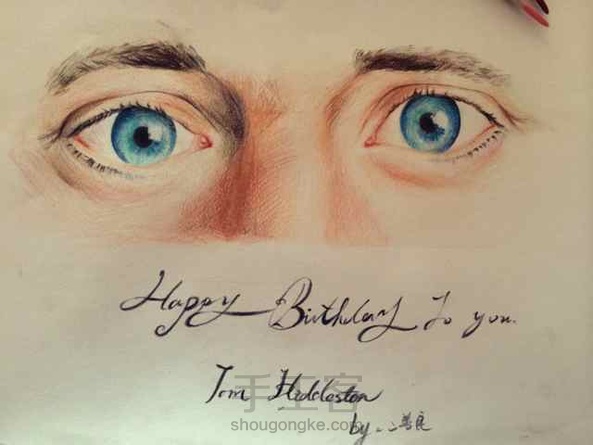 Happy Birthday To you.
Tom Hiddleston
手工客
shougongke.com
by.